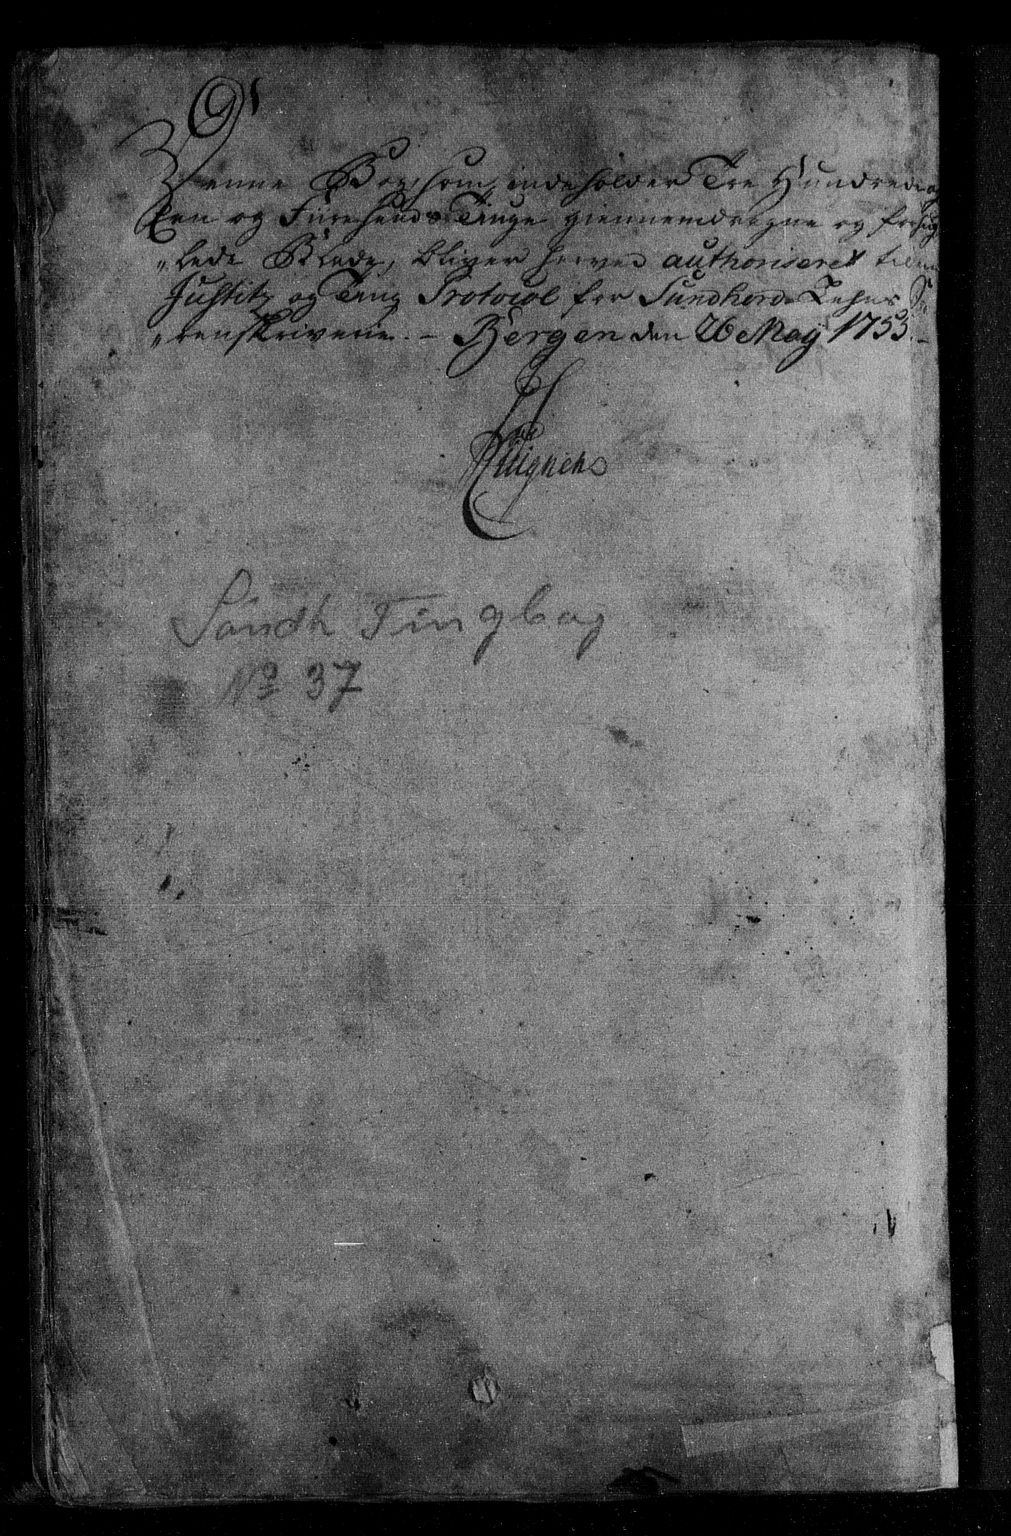 Denne Bog, som indeholder Tre Hundrede og
Een og Fiiresinds Tiuge giennemdragne og forsig
„lede Blade, bliver herved authoriseret til en
Justitz og Ting Protocol for Sundhords Lehns So-
„renskriverie. – Bergen den 26 May 1753. –
Søndh Tingbog
No 37